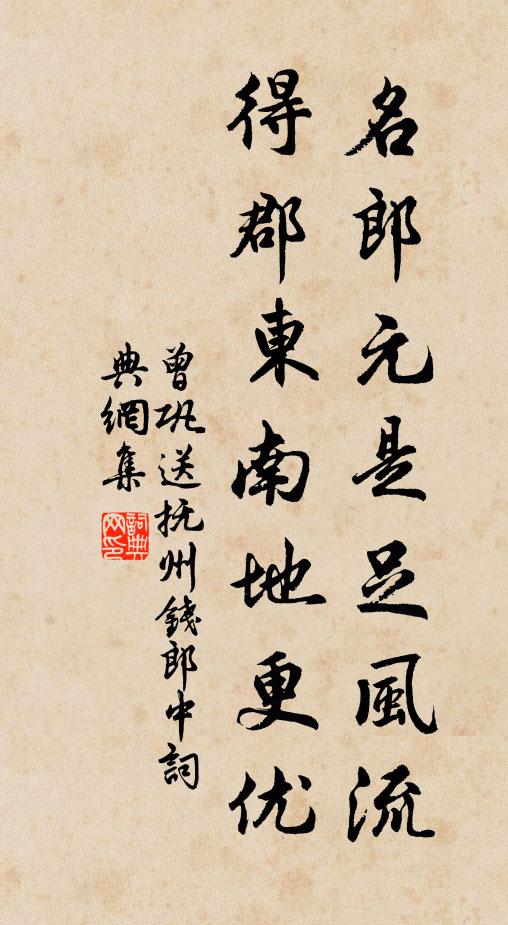 名郎元是足風流
得郡東南地更优
曾巩送抚州錢郎中詞
典網集
詞典网印